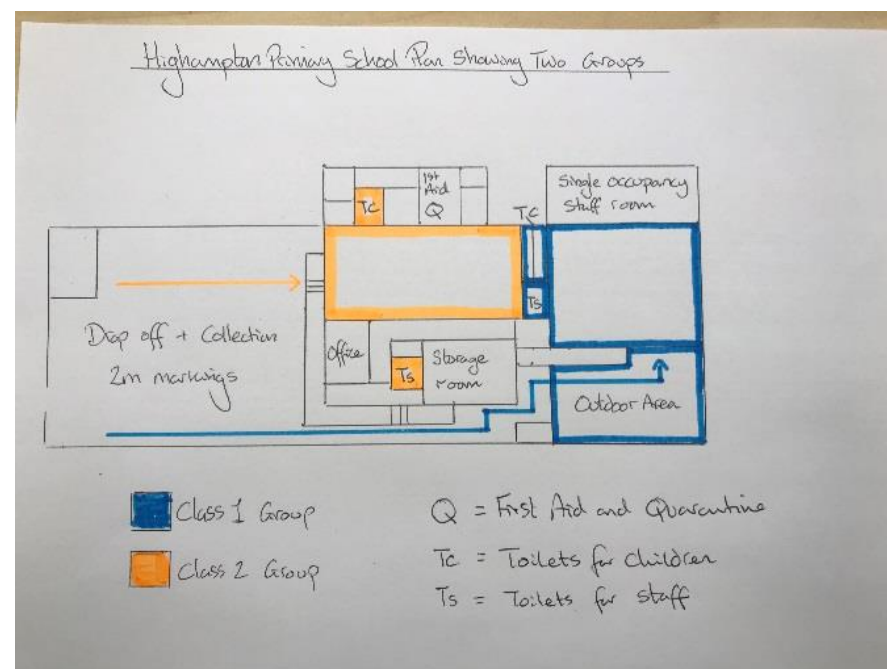 Highampton Primary School Plan Showing Two Groups
1st
Aid
Q
Tc
Single occupancy
staff room
Tc
Ts
Drop off + Collection
2m markings
Office
Ts
Storage
room
Outdoor Area
Class 1 Group
Class 2 Group
Q = First Aid and Quarantine
Tc = Toilets for children
Ts = Toilets for staff